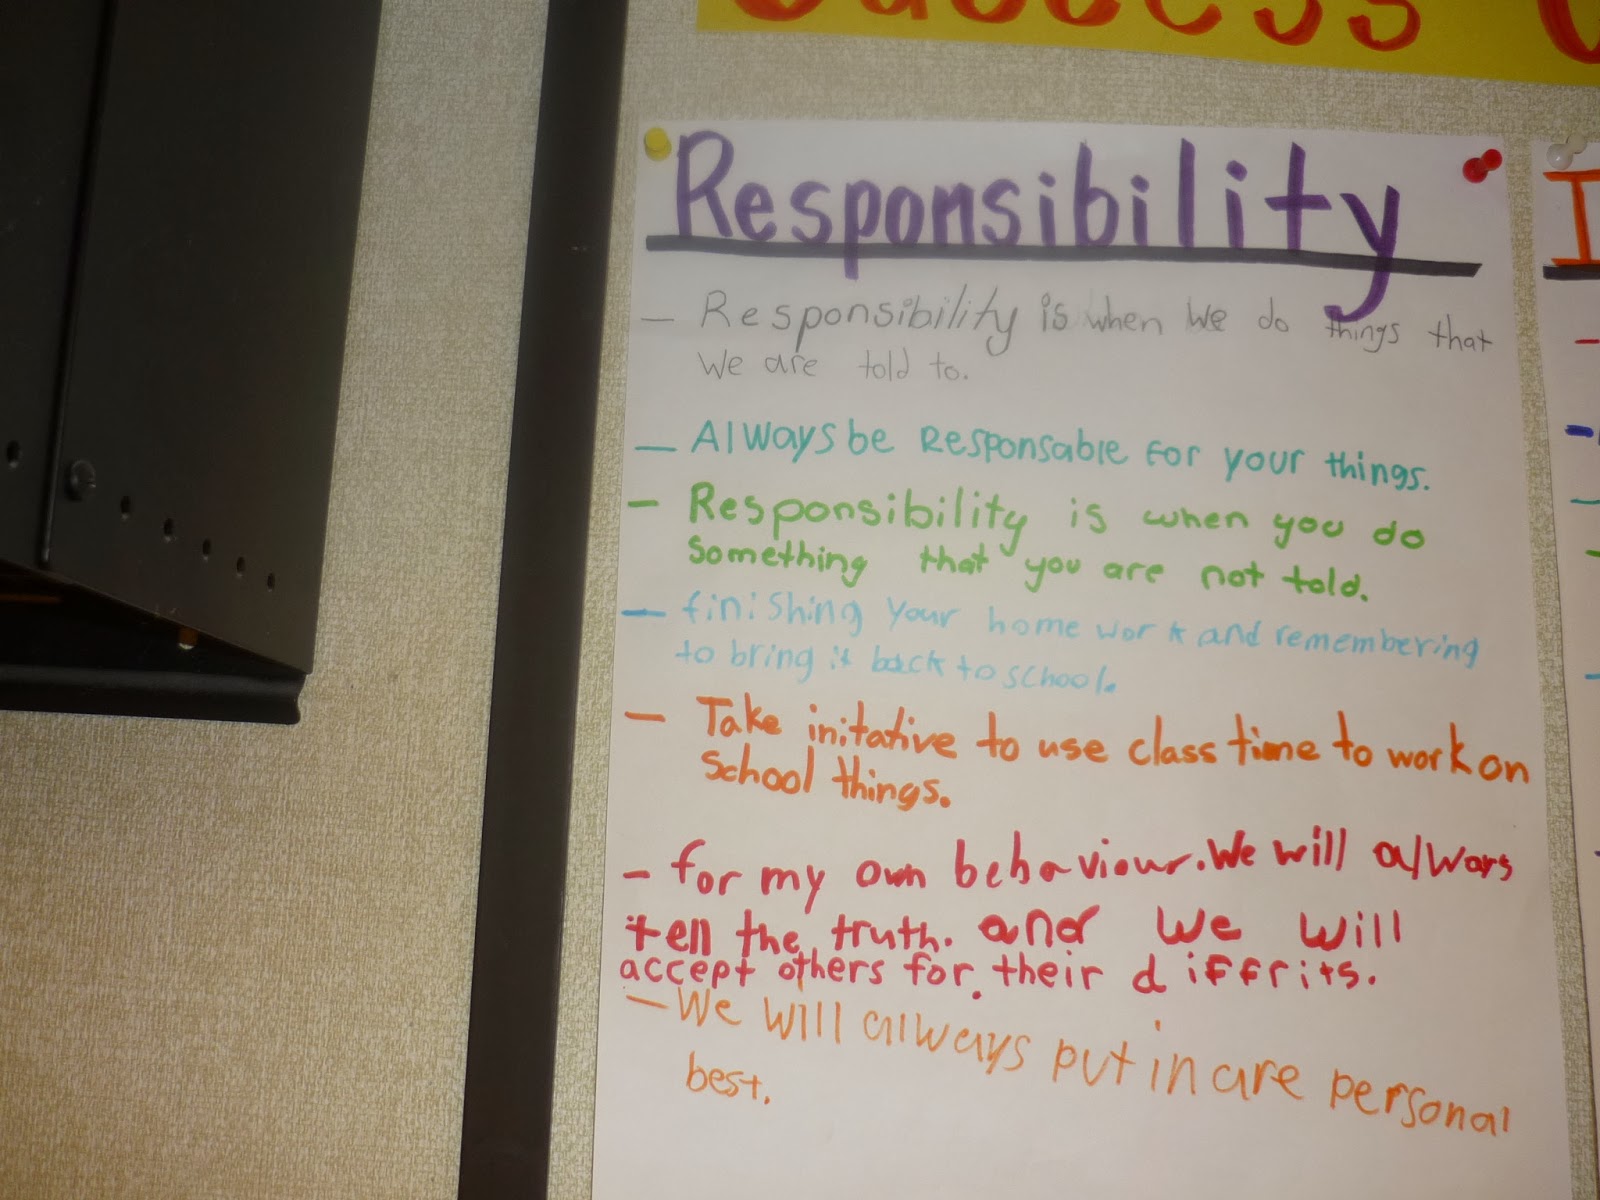 Success
Responsibility
— Responsibility is when we do things that
we are told to.
— Always be Responsable for your things.
— Responsibility is when you do
something that you are not told.
— finishing your home work and remembering
to bring it back to school.
— Take initative to use class time to work on
school things.
— for my own behaviour. We will always
tell the truth. and we will
accept others for their diffrits.
— We will always put in are personal
best.